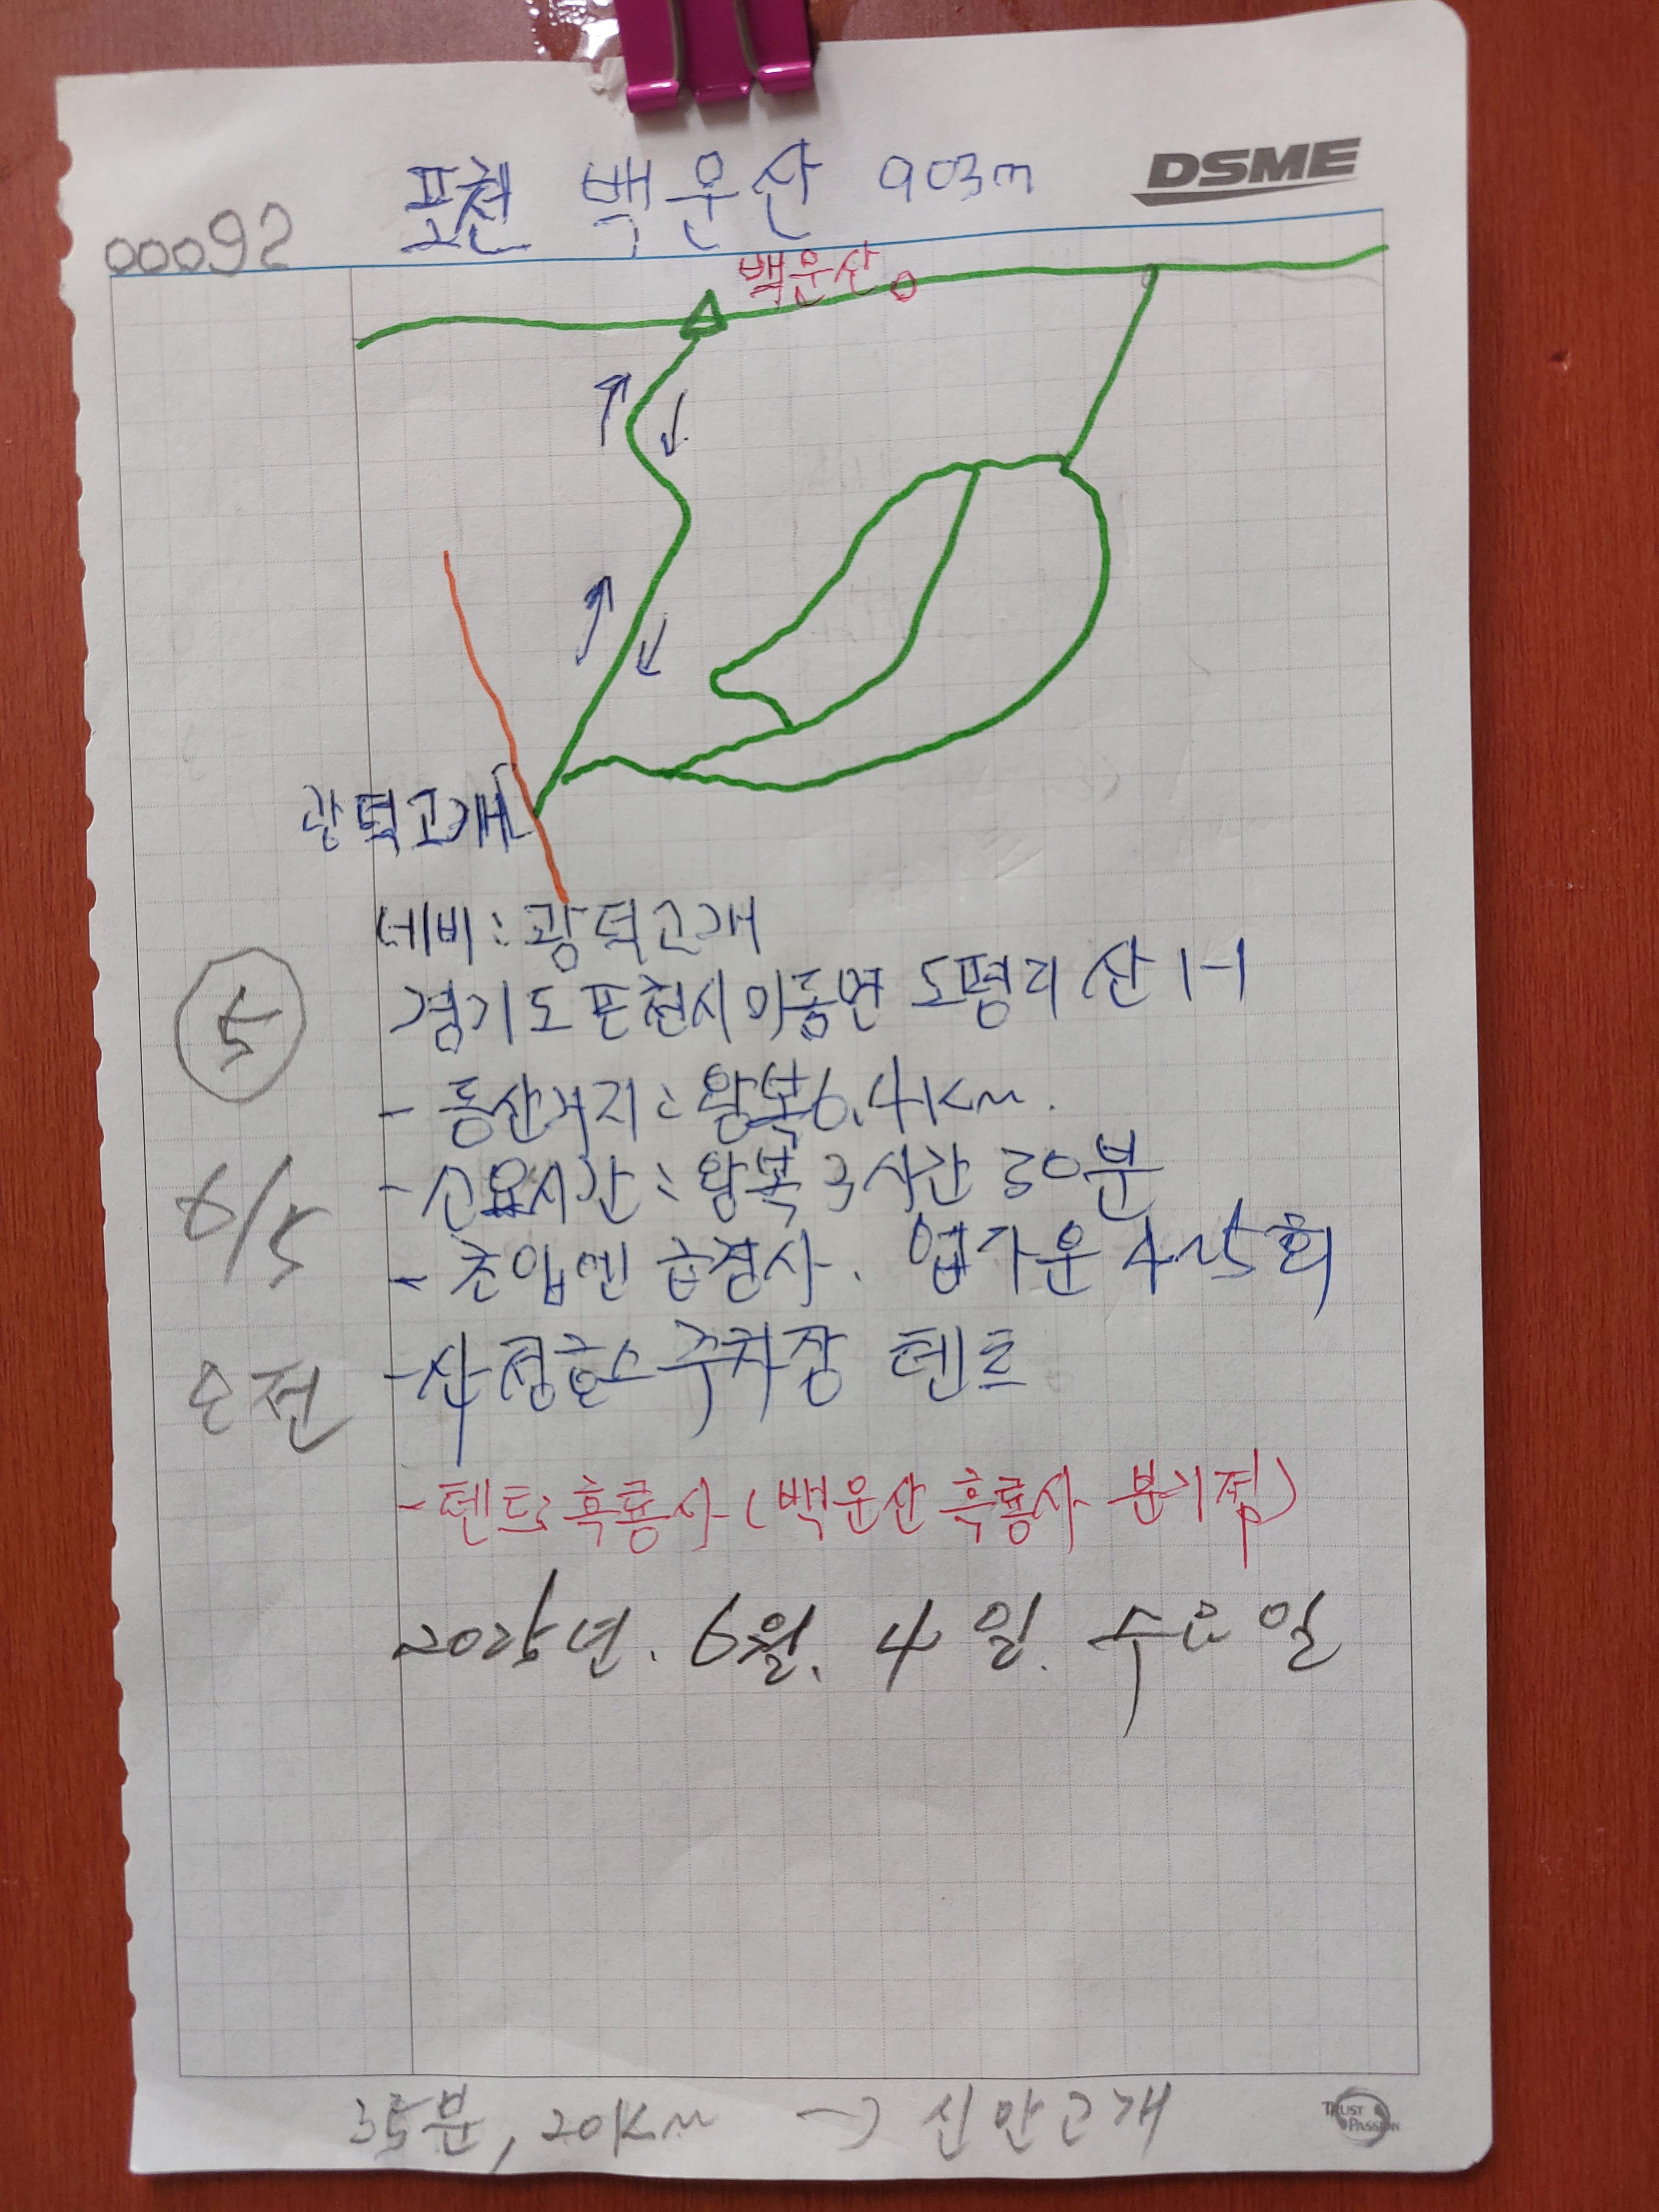 포천 백운산 903m
DSME
00092
백운산
광덕고개
네비: 광덕고개
경기도 포천시 이동면 도평리 산 1-1
- 등산거리: 왕복 6.4Km.
- 소요시간: 왕복 3시간 30분
- 초입엔 급경사. 업다운 4~5회
- 산정호수 주차장 텐트
- 텐트: 흑룡사 (백운산 흑룡사 분기점)
2025년. 6월. 4일. 수요일
5
6/5
오전
35분, 20Km → 신안고개
TRUST
PASSION